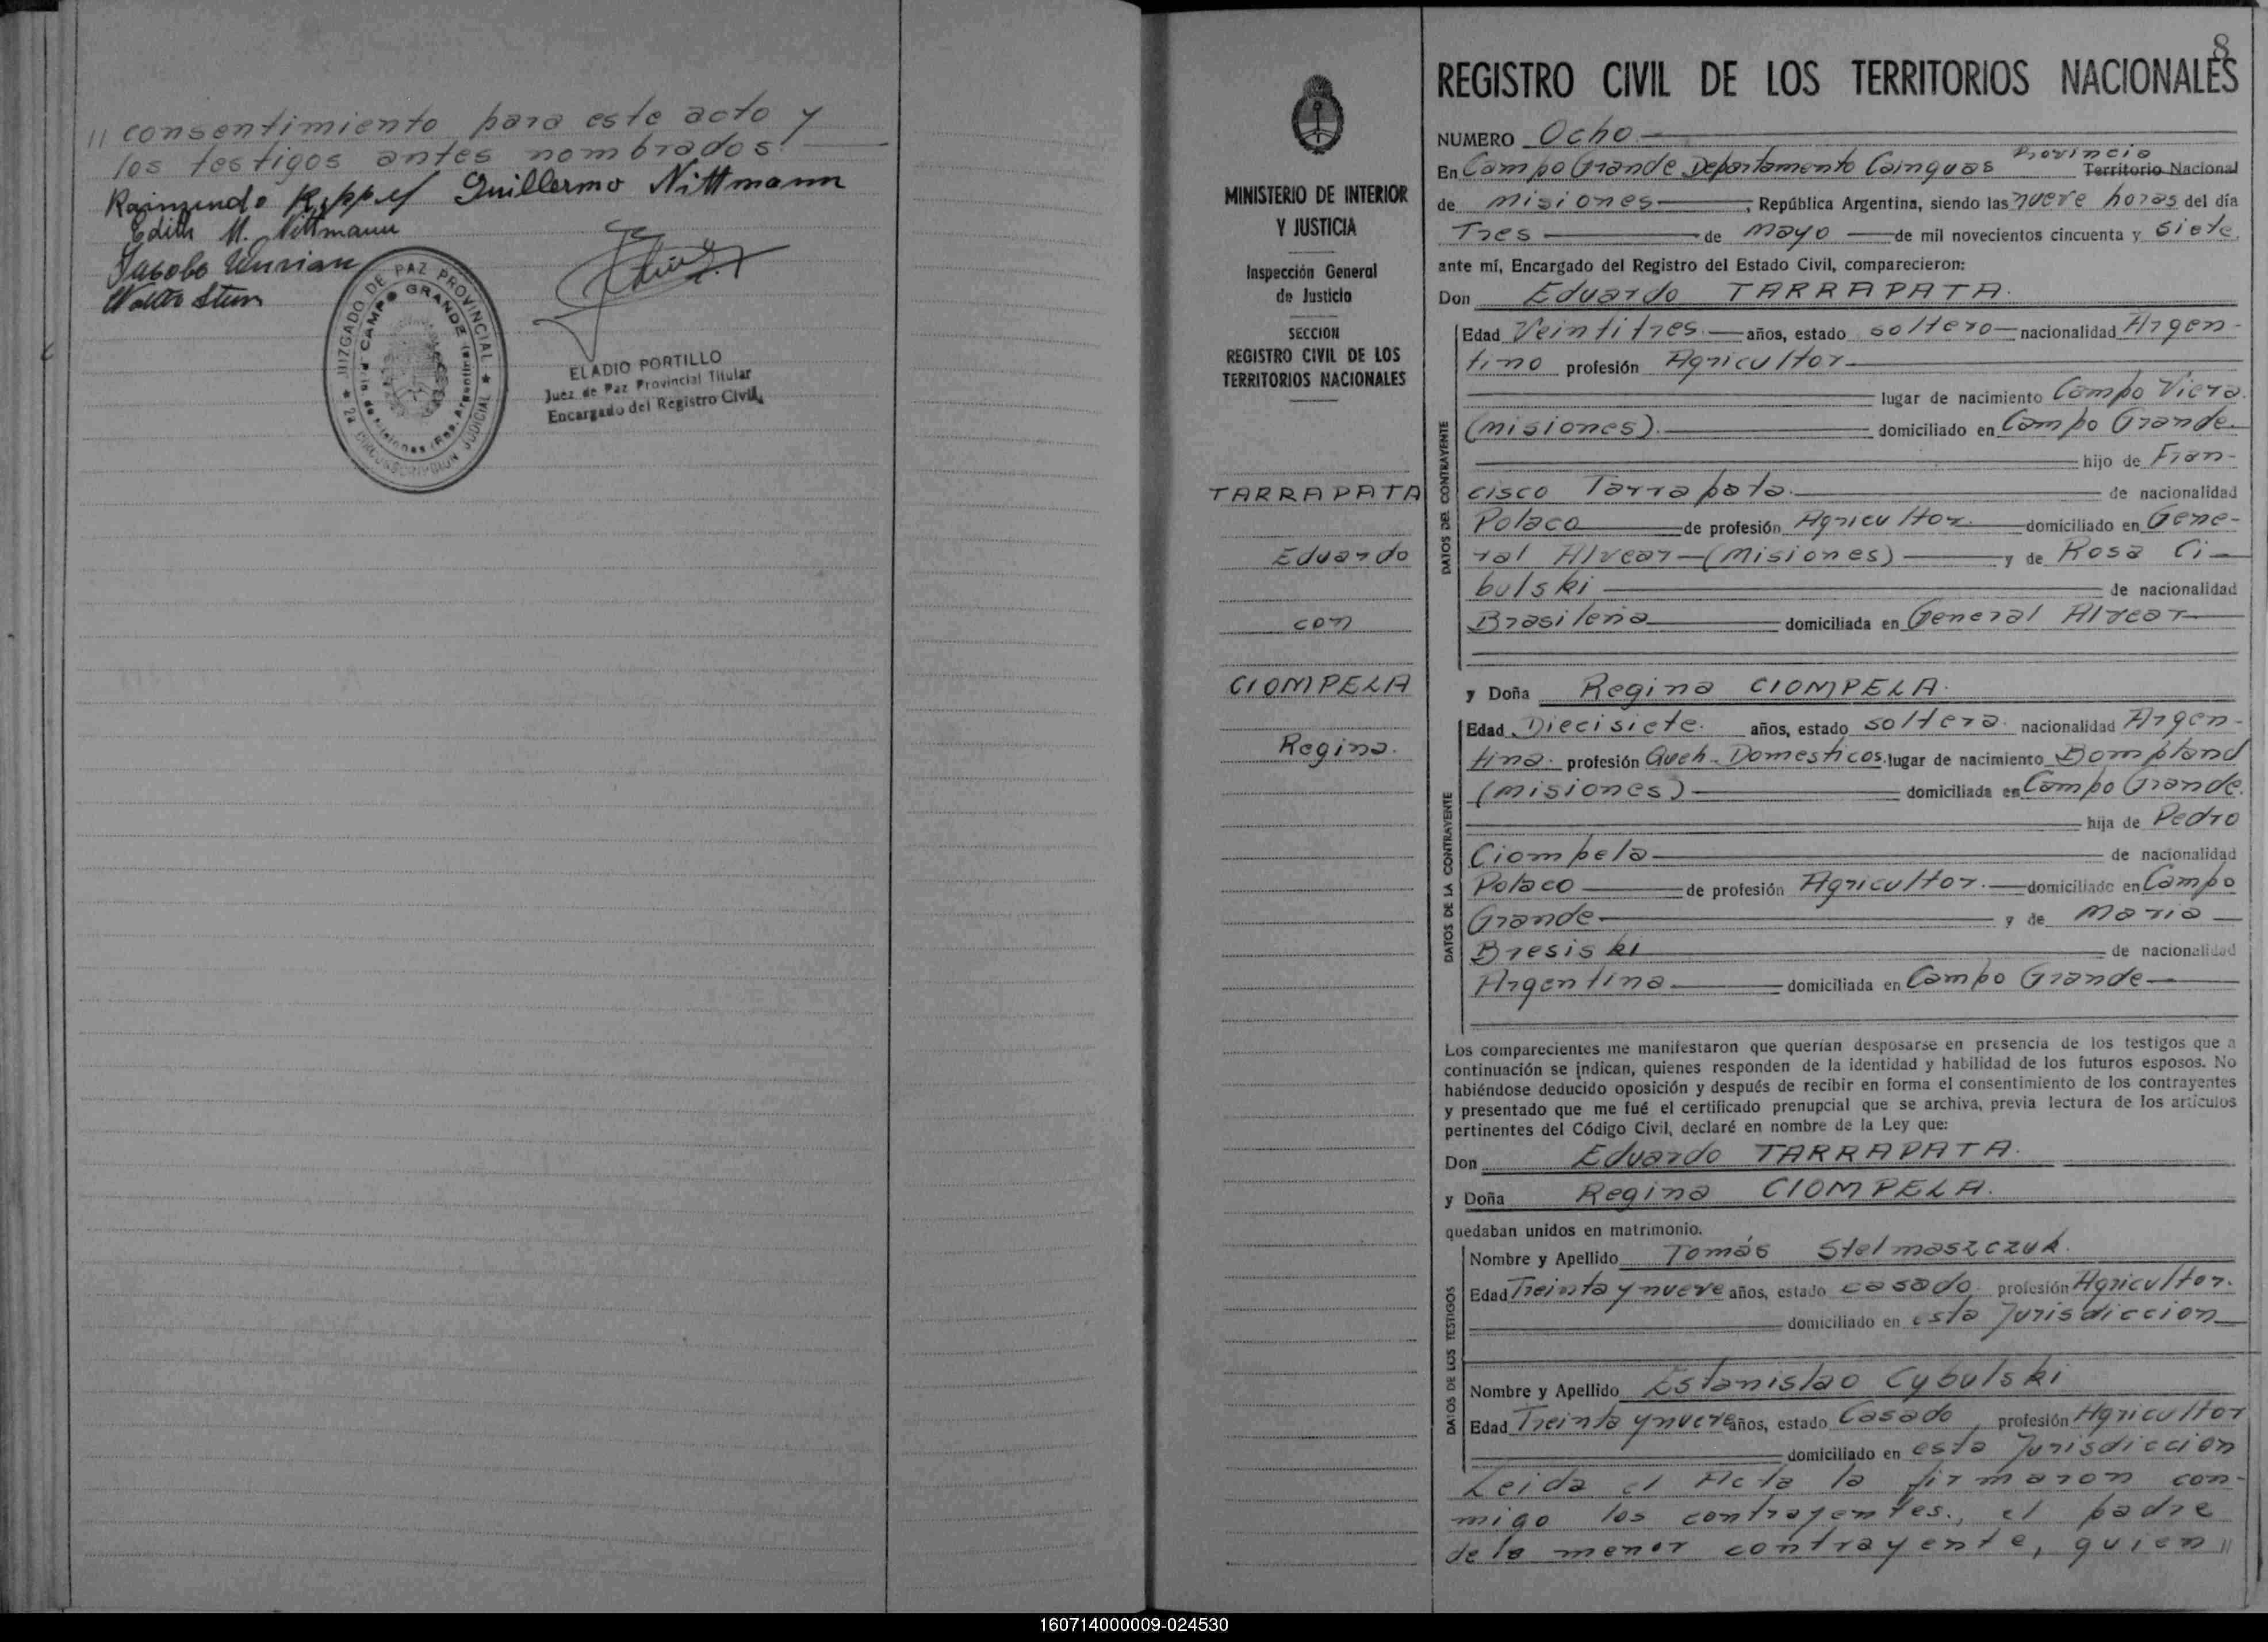 " consentimiento para este acto y
los testigos antes nombrados.
Guillermo Nittmann
Edith M. Nittmann
Jacobo
JUZGADO DE PAZ PROVINCIAL
CAMPO GRANDE
2a CIRCUNSCRIPCION JUDICIAL
ELADIO PORTILLO
Juez de Paz Provincial Titular
Encargado del Registro Civil
8
MINISTERIO DE INTERIOR
Y JUSTICIA
Inspección General
de Justicia
SECCION
REGISTRO CIVIL DE LOS
TERRITORIOS NACIONALES
TARRAPATA
Eduardo
con
CIOMPELA
Regina.
REGISTRO CIVIL DE LOS TERRITORIOS NACIONALES
NUMERO Ocho
Provincia
En Campo Grande Departamento Cainguas Territorio Nacional
de Misiones, República Argentina, siendo las nueve horas del día
Tres de Mayo de mil novecientos cincuenta y siete,
ante mí, Encargado del Registro del Estado Civil, comparecieron:
Don Eduardo TARRAPATA.
DATOS DEL CONTRAYENTE
Edad Veintitres años, estado soltero nacionalidad Argen-
tino profesión Agricultor
lugar de nacimiento Campo Viera.
(Misiones). domiciliado en Campo Grande.
hijo de Fran-
cisco Tarrapata. de nacionalidad
Polaco de profesión Agricultor. domiciliado en Gene-
ral Alvear (Misiones) y de Rosa Ci-
bulski de nacionalidad
Brasileña domiciliada en General Alvear
y Doña Regina CIOMPELA.
DATOS DE LA CONTRAYENTE
Edad Diecisiete. años, estado soltera. nacionalidad Argen-
tina. profesión Queh. Domesticos. lugar de nacimiento Bompland
(Misiones) domiciliada en Campo Grande.
hija de Pedro
Ciompela de nacionalidad
Polaco de profesión Agricultor. domiciliado en Campo
Grande y de Maria
Bresiski de nacionalidad
Argentina domiciliada en Campo Grande
Los comparecientes me manifestaron que querían desposarse en presencia de los testigos que a
continuación se indican, quienes responden de la identidad y habilidad de los futuros esposos. No
habiéndose deducido oposición y después de recibir en forma el consentimiento de los contrayentes
y presentado que me fué el certificado prenupcial que se archiva, previa lectura de los artículos
pertinentes del Código Civil, declaré en nombre de la Ley que:
Don Eduardo TARRAPATA.
y Doña Regina CIOMPELA.
quedaban unidos en matrimonio.
DATOS DE LOS TESTIGOS
Nombre y Apellido Tomás Stelmaszczuk.
Edad Treinta y nueve años, estado casado profesión Agricultor.
domiciliado en esta Jurisdiccion
Nombre y Apellido Estanislao Cybulski
Edad Treinta y nueve años, estado Casado, profesión Agricultor
domiciliado en esta Jurisdiccion
Leida el Acta la firmaron con-
migo los contrayentes., el padre
de la menor contrayente, quien "
160714000009-024530